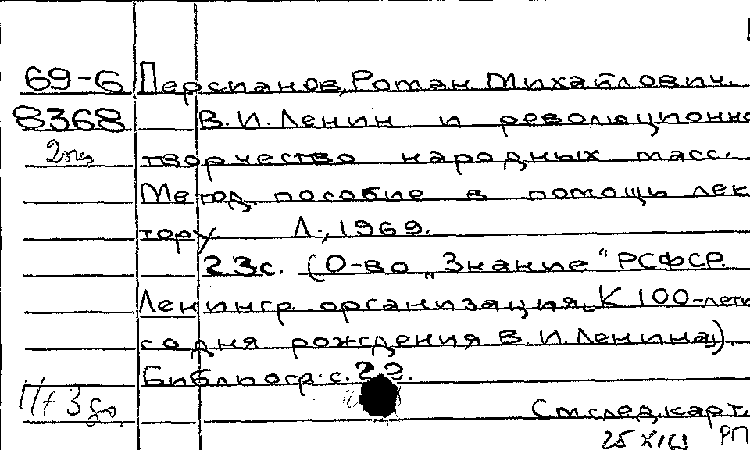 69-6 Персианов, Роман Михайлович.
8368 В. И. Ленин и революционно
2 творчество народных масс.
Метод. пособие в помощь лек
тору Л., 1969.
23с. (О-во „Знание" РСФСР.
Ленингр. организация. К 100-лети
со дня рождения В. И. Ленина).
Библиогр.: с. 22.
См. след. карт.
25 XI 69 РП